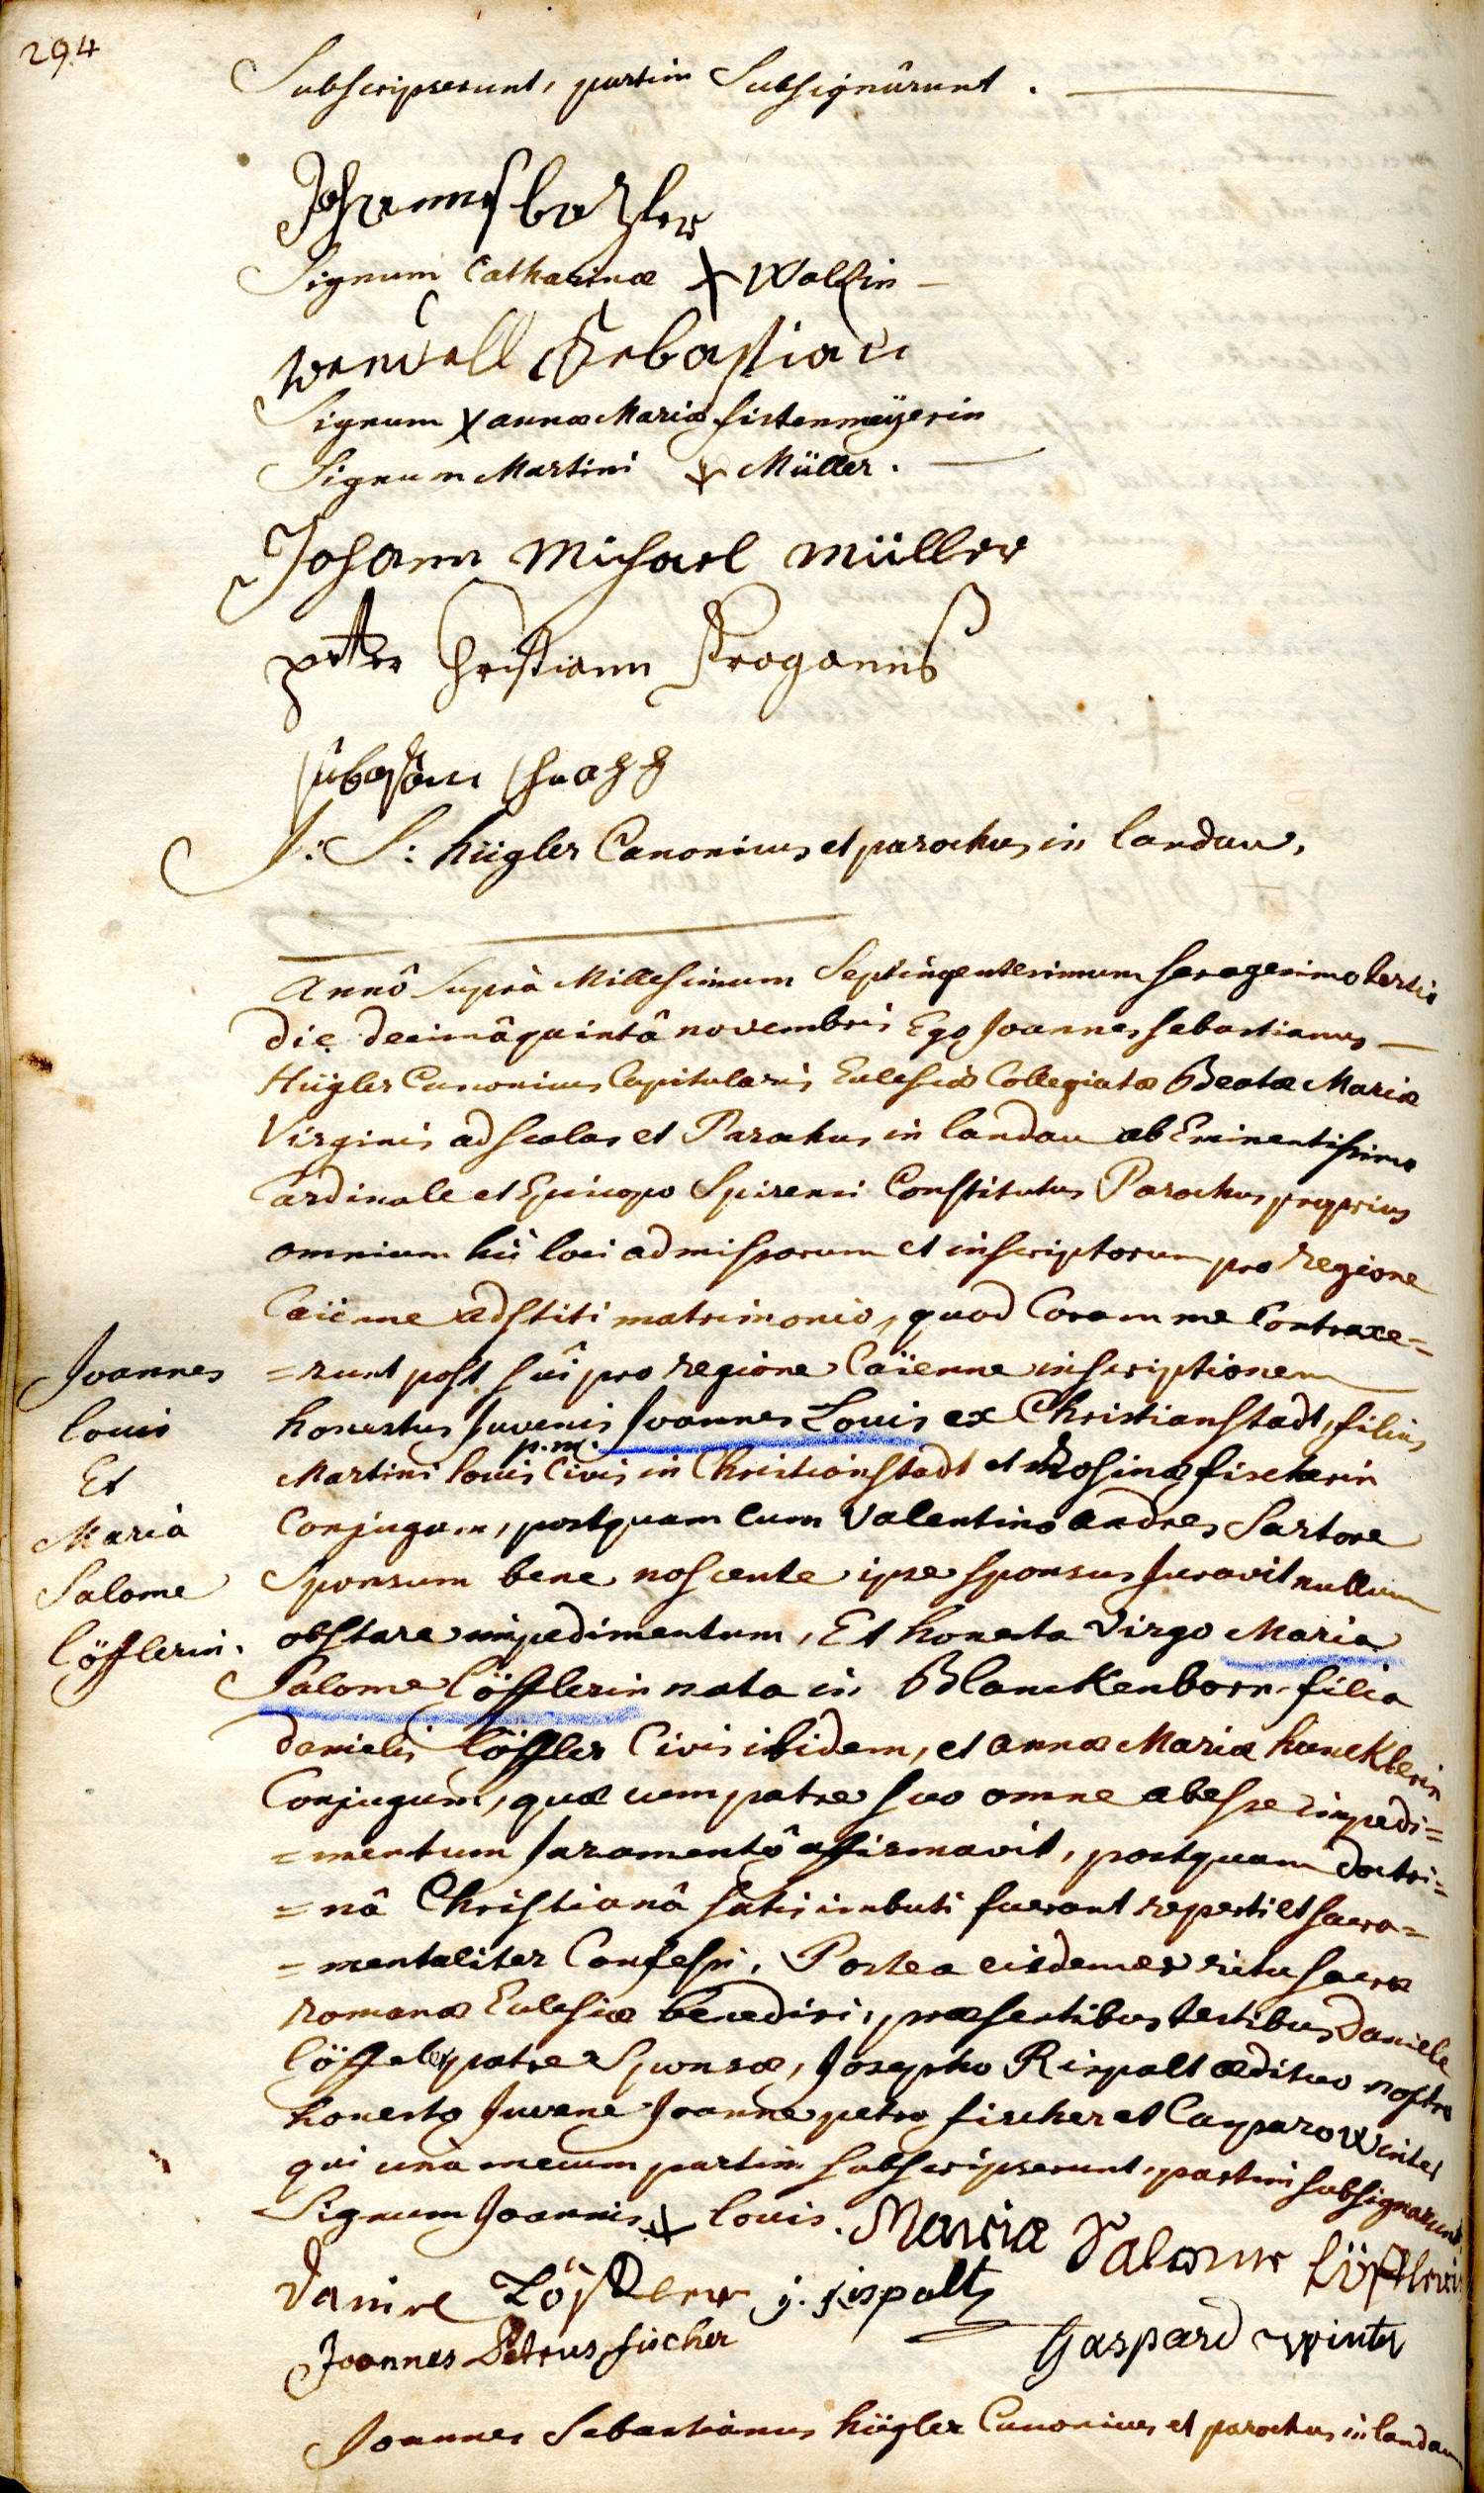 294
Subscripserunt, partim Subsignârunt.
Johannes
Signum Catharinæ X Wolffin
Wendell Sebastian
Signum X annæ Mariæ fistenmeÿerin
Signum Martini X Müller.
Johann Michael Müller
petter Christiann
J: S: hügler Canonicus et parochus in landau,
Annô Suprà Millesimum Septingentesimum sexagesimo tertio
die decimâquintâ novembris Ego Joannes sebastianus
Hügler Canonicus Capitularis Eclesiæ Collegiatæ Beatæ Mariæ
Virginis ad scalas et Parochus in landau ab Eminentissimo
Cardinale et Episcopo Spirensi Constitutus Parochus proprius
omnium hìc loci admissorum et inscriptorum pro regione
Caïenne adstiti matrimonio, quod Coram me Contraxe=
=runt post suî pro regione Caïenne inscriptionem
honestus Juvenis Joannes Louis ex Christianstadt, filius
p. m.
Martini louis Civis in Christianstadt et Rosinæ fischerin
Conjugum, postquam cum Valentino andres Sartore
Sponsum bene noscente ipse sponsus Juravit nullum
obstare impedimentum, Et honesta Virgo Maria
Salome Löfflerin nata in Blanckenborn filia
danielis Löffler Civis ibidem, et annæ Mariæ hencklerin
Conjugum, quæ cum patre suo omne abesse impedi=
=mentum Juramentô affirmavit, postquam doctri=
=nâ Christianâ satis imbuti fuerant reperti et sacra=
=mentaliter Confessi, Postea eisdem ex ritu sacræ
romanæ Eclesiæ benedixi, præsentibus testibus daniele
Löffeler patre Sponsæ, Josepho Rispalt ædituo nostro
honesto Juvene Joanne petro fischer et Casparo Winter
qui unà mecum partim subscripserunt, partim subsignarunt.
Joannes
louis
Et
Maria
Salome
Löfflerin.
Signum Joannis X louis. Maria Salome Löfflerin
Daniel Löffler j. rispaltz
Joannes Petrus fischer Gaspard winter
Joannes Sebastianus hügler Canonicus et parochus in landau